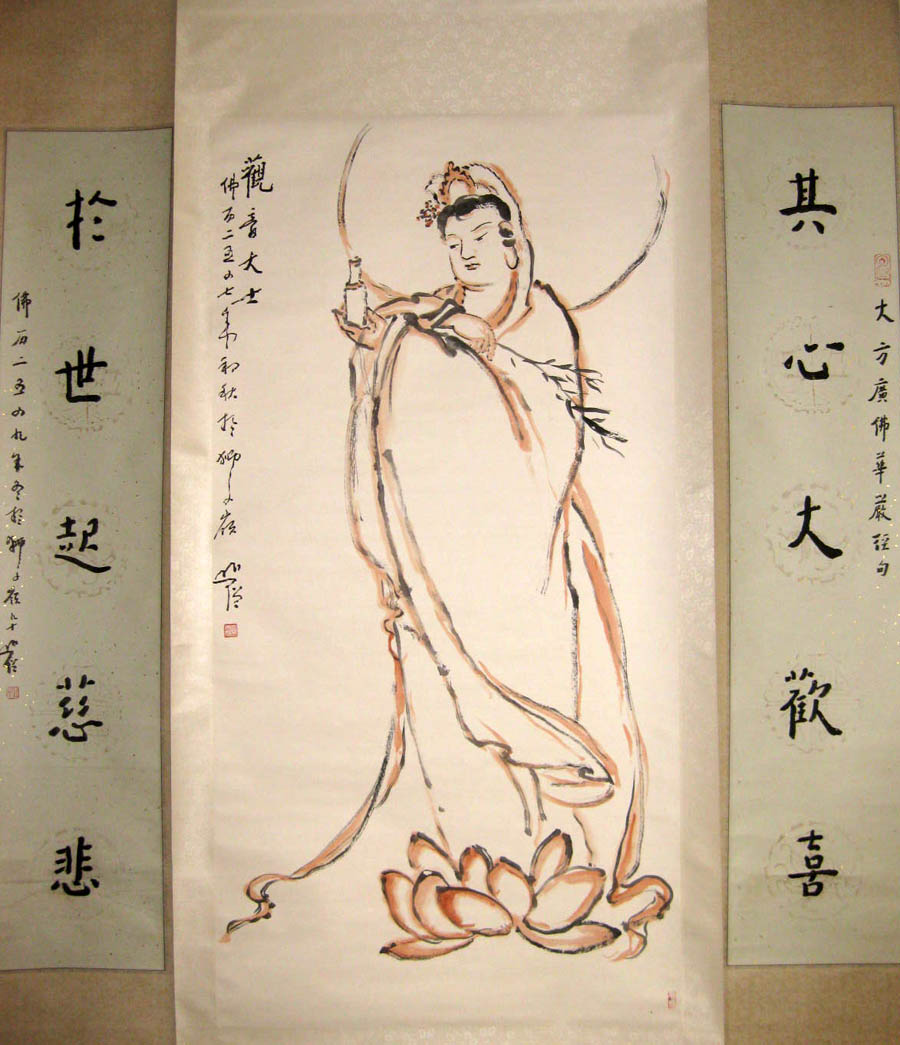 大方廣佛華嚴經句
其心大歡喜
觀音大士
佛历二五四七年初秋於獅子嶺
於世起慈悲
佛历二五四九年冬於獅子嶺九十